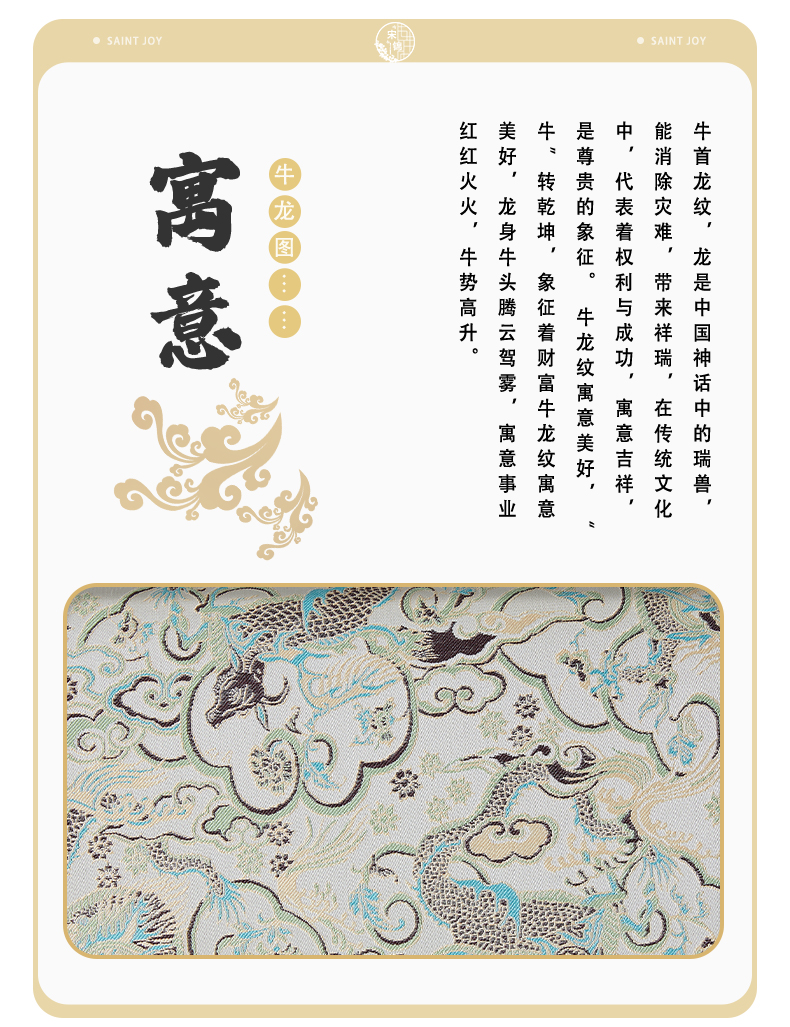 SAINT JOY
宋锦
SAINT JOY
寓意
牛龙图……
牛首龙纹，龙是中国神话中的瑞兽，
能消除灾难，带来祥瑞，在传统文化
中，代表着权利与成功，寓意吉祥，
是尊贵的象征。 牛龙纹寓意美好，“
牛”转乾坤，象征着财富牛龙纹寓意
美好，龙身牛头腾云驾雾，寓意事业
红红火火，牛势高升。